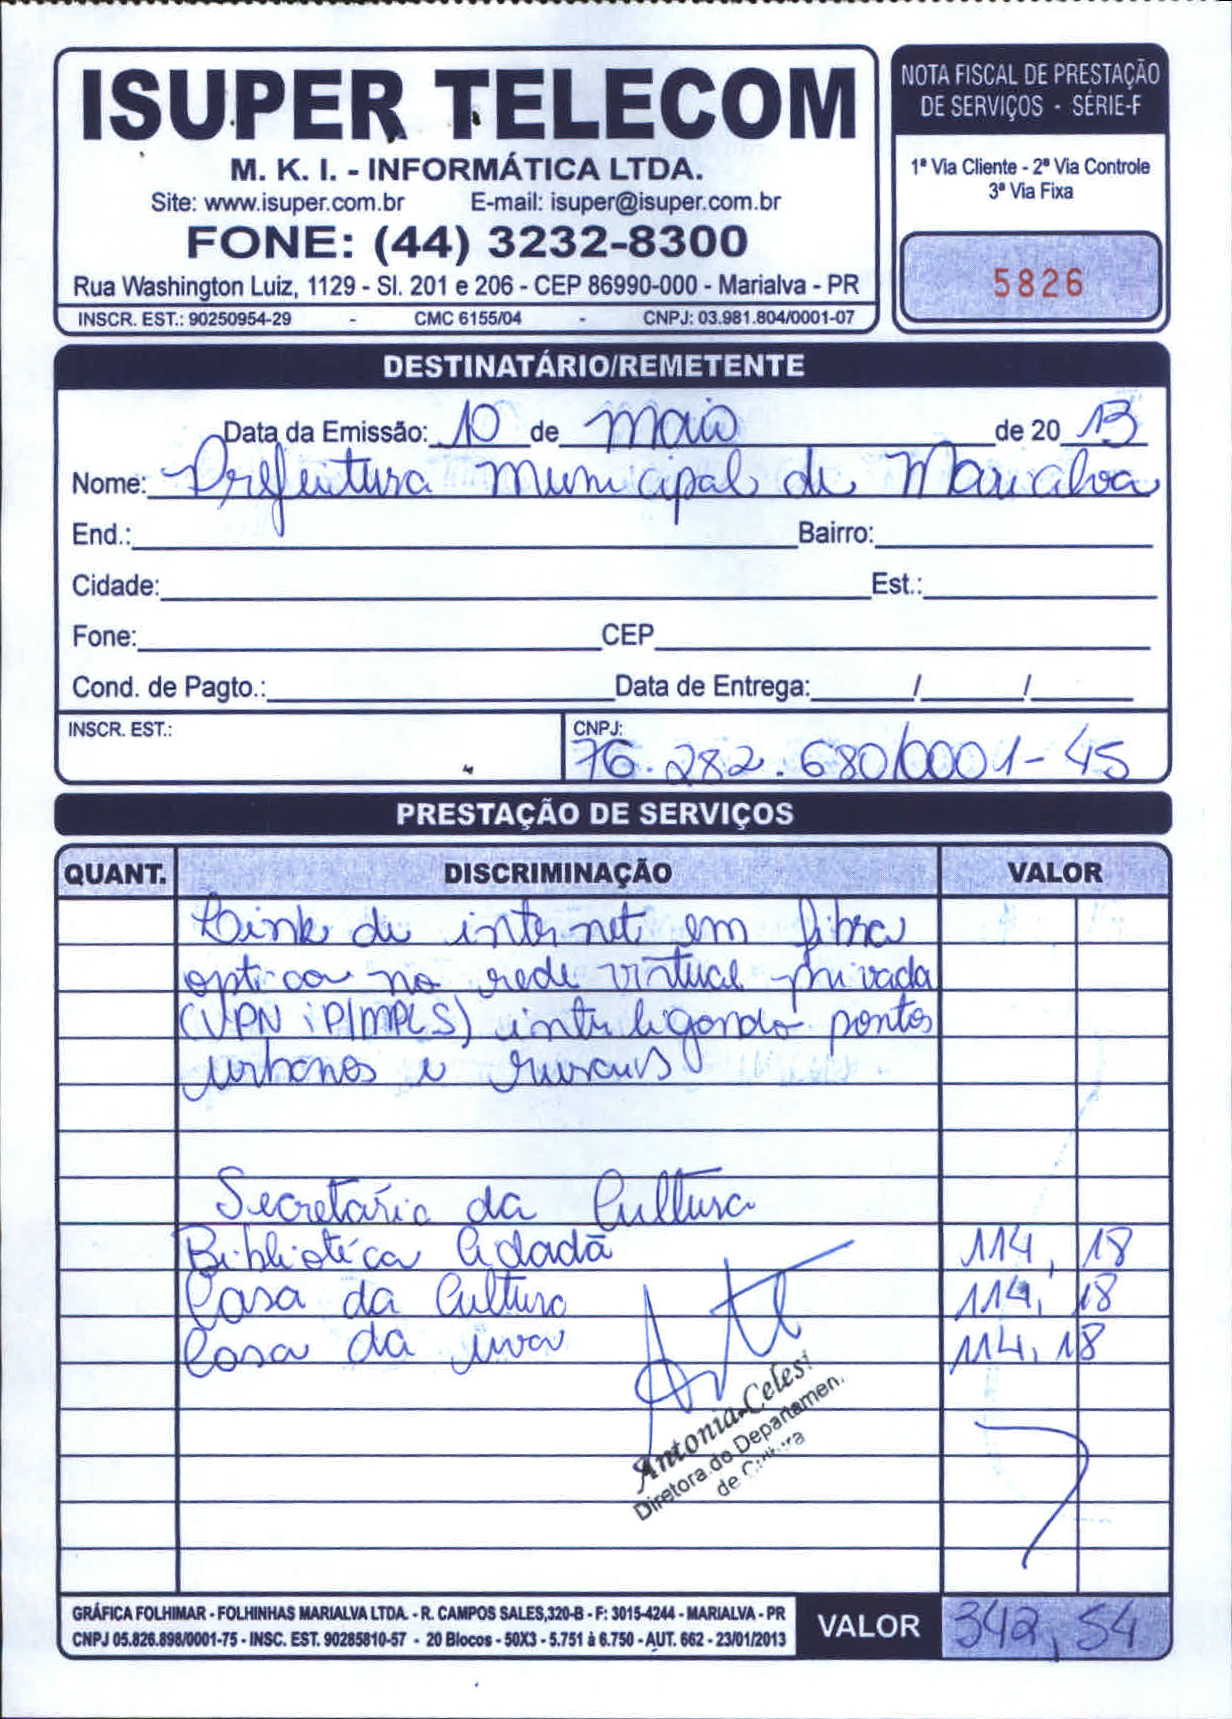 ISUPER TELECOM
M. K. I. - INFORMÁTICA LTDA.
Site: www.isuper.com.br E-mail: isuper@isuper.com.br
FONE: (44) 3232-8300
Rua Washington Luiz, 1129 - Sl. 201 e 206 - CEP 86990-000 - Marialva - PR
INSCR. EST.: 90250954-29 - CMC 6155/04 - CNPJ: 03.981.804/0001-07
NOTA FISCAL DE PRESTAÇÃO
DE SERVIÇOS - SÉRIE-F
1ª Via Cliente - 2ª Via Controle
3ª Via Fixa
5826
DESTINATÁRIO/REMETENTE
Data da Emissão: 10 de maio de 20 13
Nome: Prefeitura Municipal de Marialva
End.: Bairro:
Cidade: Est.:
Fone: CEP
Cond. de Pagto.: Data de Entrega: / /
INSCR. EST.: CNPJ:
76.282.680/0001-45
PRESTAÇÃO DE SERVIÇOS
QUANT. DISCRIMINAÇÃO VALOR
Link de internet em fibra
optica na rede virtual privada
(VPN iP/MPLS) interligando pontos
urbanos e rurais
Secretária da Cultura
Biblioteca Cidadã 114,18
Casa da Cultura 114,18
Casa da uva 114,18
Antonia Celest
Diretora do Departamen.
de
GRÁFICA FOLHIMAR - FOLHINHAS MARIALVA LTDA. - R. CAMPOS SALES,320-B - F: 3015-4244 - MARIALVA - PR
CNPJ 05.826.898/0001-75 - INSC. EST. 90285810-57 - 20 Blocos - 50X3 - 5.751 à 6.750 - AUT. 662 - 23/01/2013
VALOR 342,54